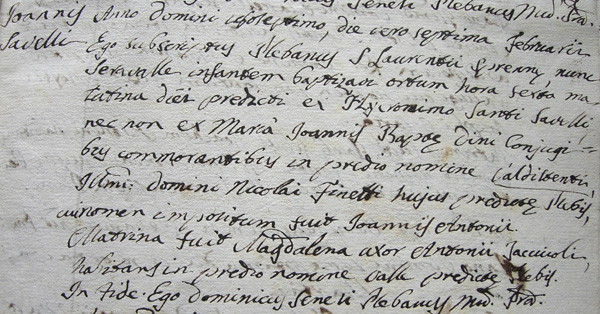 Joannis Anno domini septimo, die vero septima Februarii
Savelli Ego subscriptus Plebanus S Laurentii nunc
infantem baptizavi ortum hora sexta ma-
tutina diei predicti ex Hyeronimo Santi Savelli,
nec non ex Maria Joannis Bapte Dini Conjugi=
bus commorantibus in predio nomine
Illmi: domini Nicolai Finetti hujus predicte Plebis,
cui nomen impositum fuit Joannis Antonii
Matrina fuit Magdalena uxor Antonii Jaccivoli,
habitans in predio nomine Valle predicte Plebis.
In fide. Ego Dominicus Seneti Plebanus